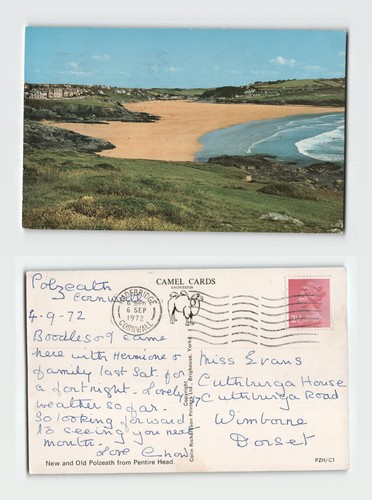 CAMEL CARDS
Polzeath
Cornwall
4-9-72
Boodles & I came
here with Hermione &
family last Sat. for
a fortnight. Lovely
weather so far.
So looking forward
to seeing you next
month.
Love Chow.
WADEBRIDGE
6 SEP
1972
CORNWALL
2½
Copyright
Colin Richardson Printers Ltd., Brighouse, Yorks.
Miss Evans
Cuthburga House
Cuthburga Road
Wimborne
Dorset
New and Old Polzeath from Pentire Head.
PZH/C1